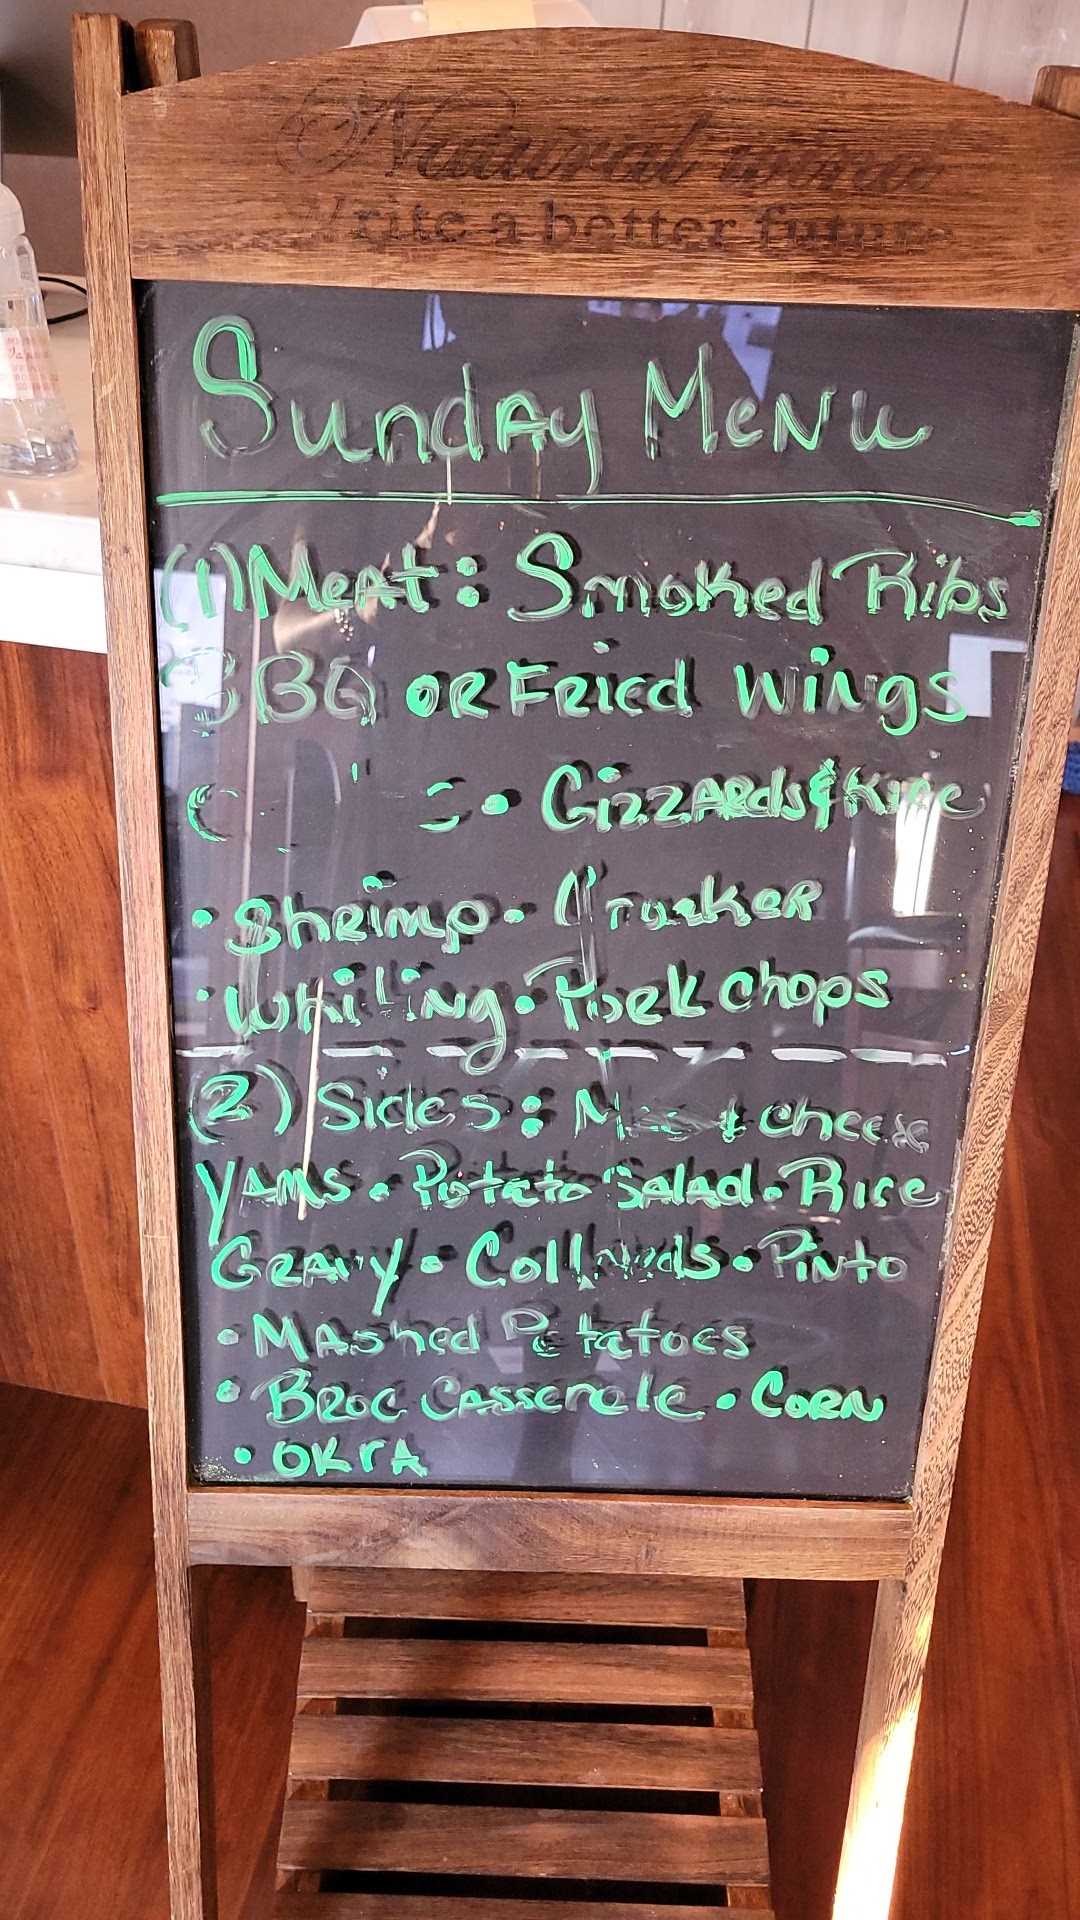 Natural wind
Write a better future
Sunday Menu
(1) Meat: Smoked Ribs
BBQ OR Fried Wings
• Gizzards & Rice
• Shrimp • Croaker
• Whiting • Pork chops
(2) Sides: Mac & Cheese
Yams • Potato Salad • Rice
Gravy • Collards • Pinto
• Mashed Potatoes
• Broc Casserele • Corn
• Okra